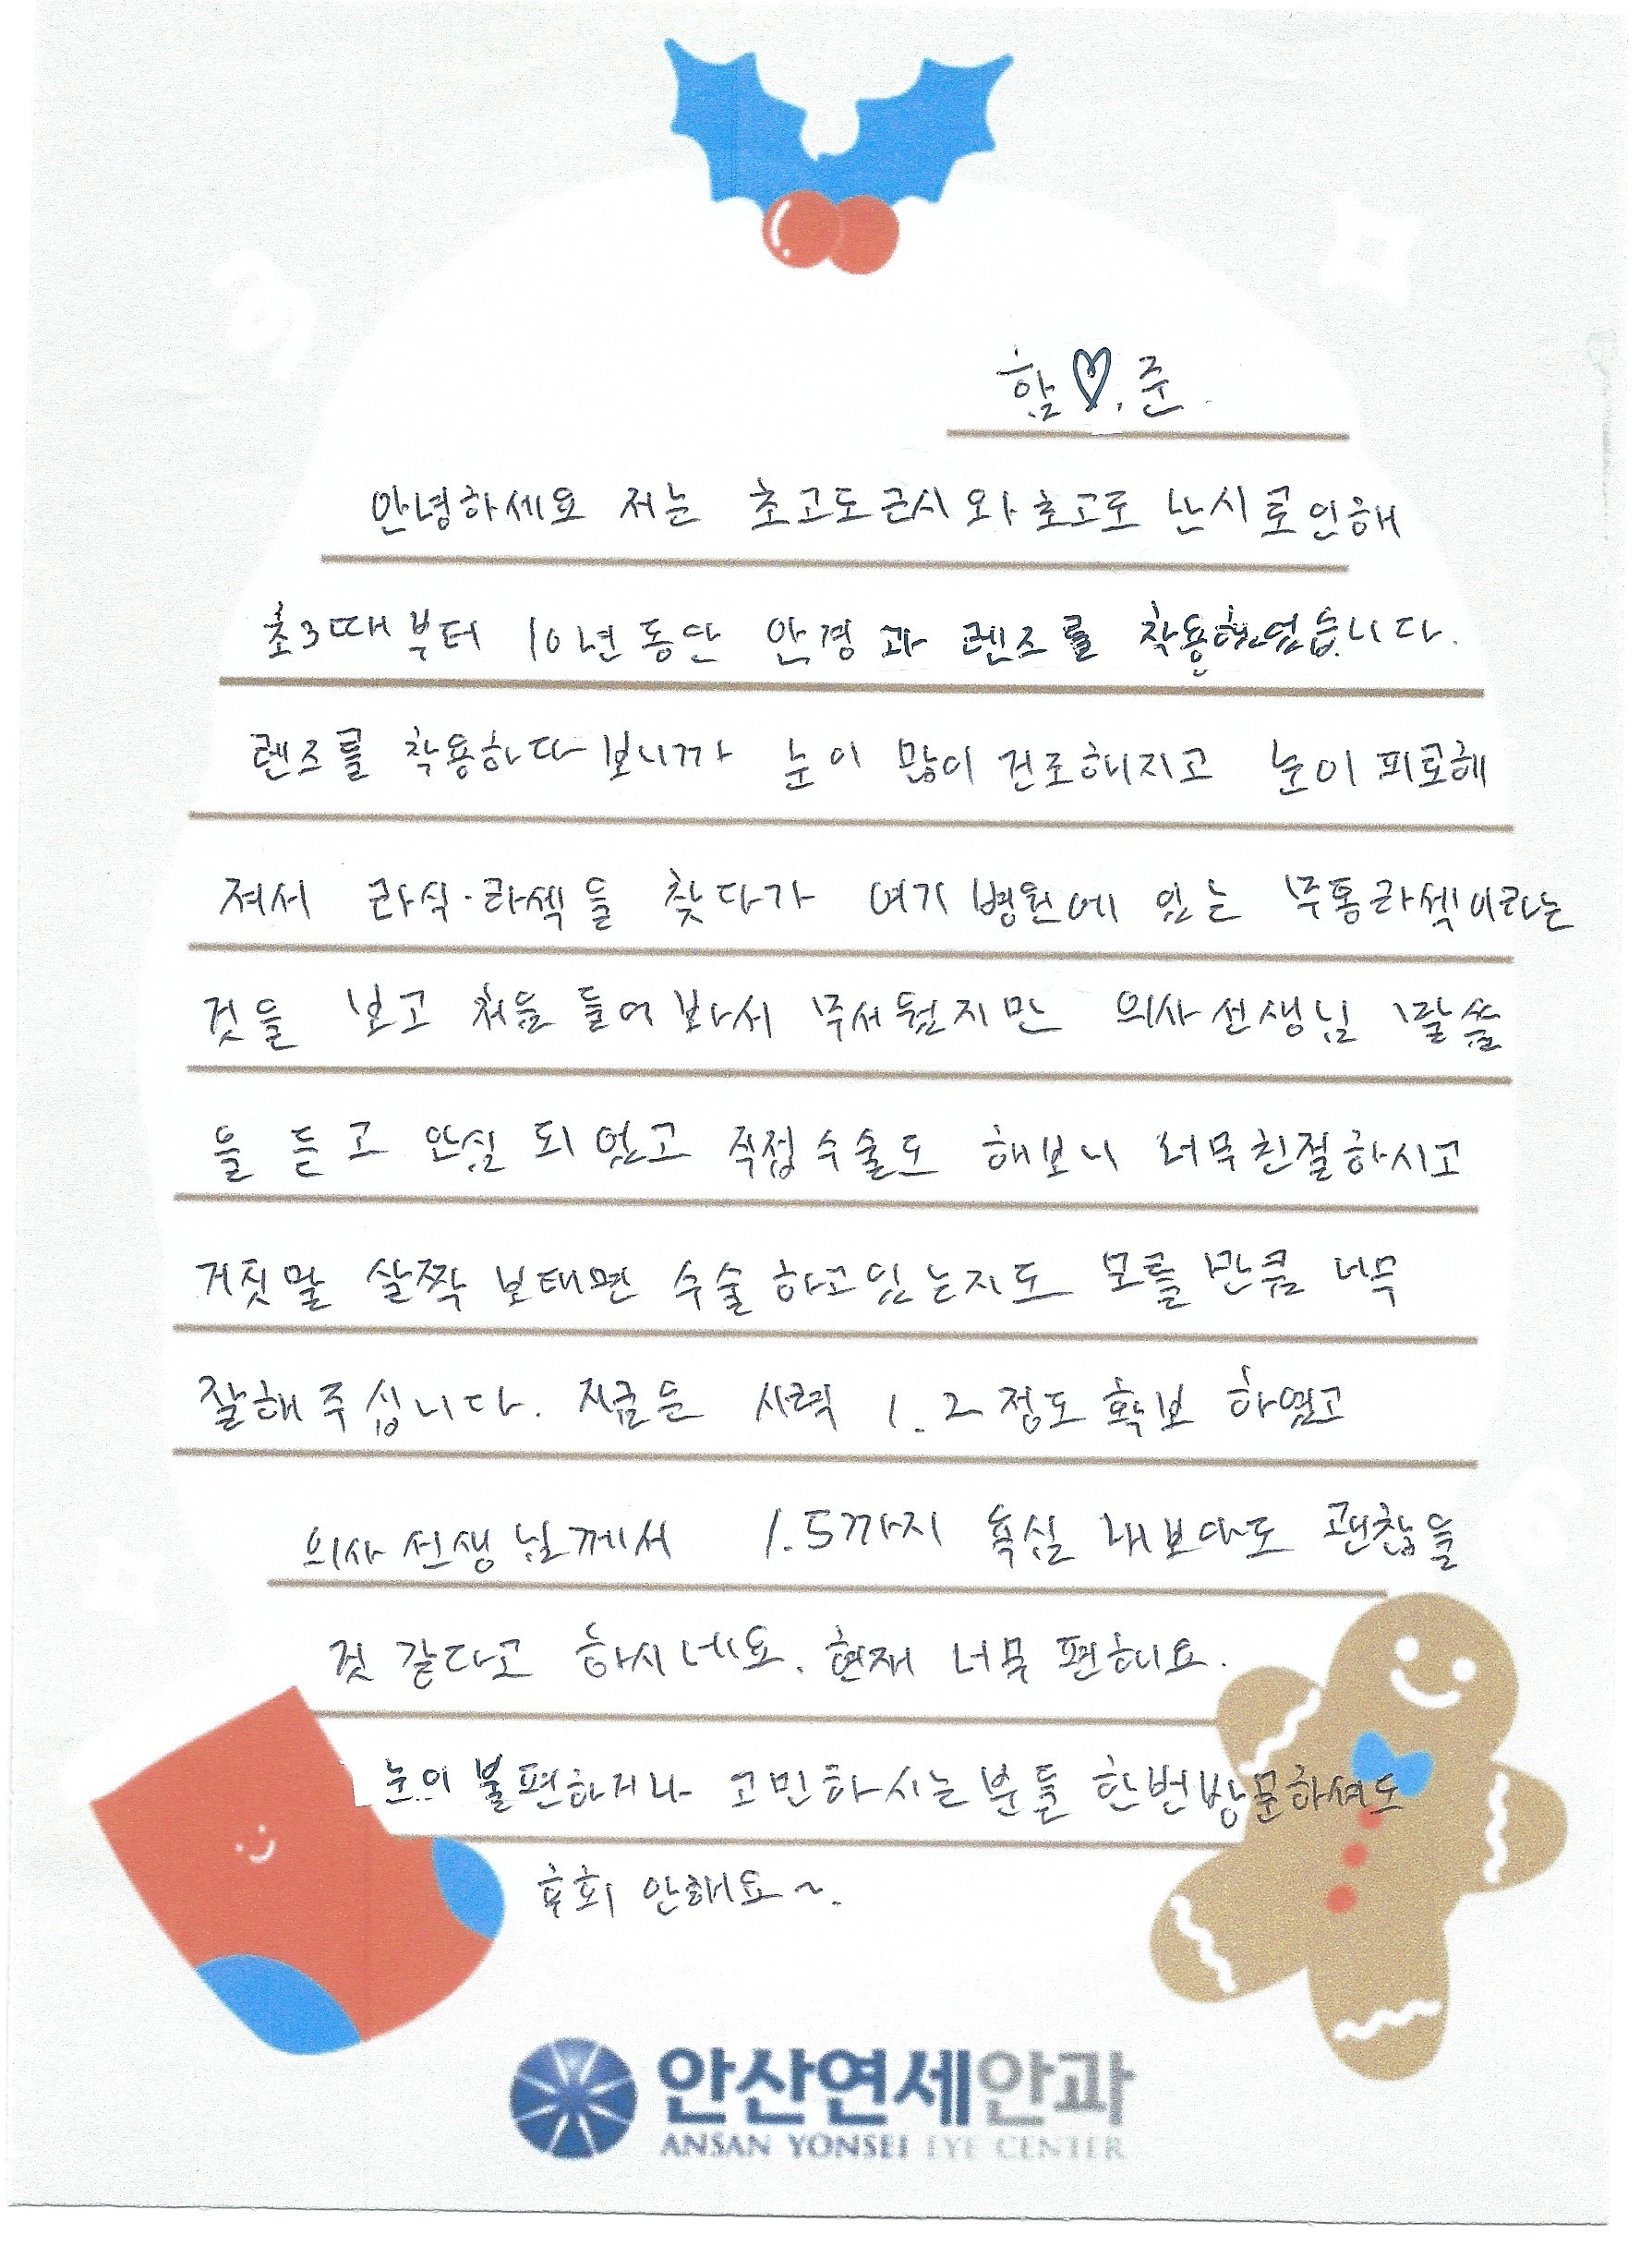 함♡.준.
안녕하세요 저는 초고도근시와 초고도 난시로인해
초3때부터 10년동안 안경과 렌즈를 착용했었습니다.
렌즈를 착용하다보니까 눈이 많이 건조해지고 눈이 피로해
져서 라식·라섹을 찾다가 여기병원에 있는 무통라섹이라는
것을 보고 처음 들어봐서 무서웠지만 의사선생님 말씀
을 듣고 안심되었고 직접수술도 해보니 너무친절하시고
거짓말 살짝 보태면 수술하고있는지도 모를만큼 너무
잘해주십니다. 지금은 시력 1.2정도확보 하였고
의사선생님께서 1.5까지 욕심 내보아도 괜찮을
것 같다고 하시네요. 현재 너무 편해요.
눈이 불편하거나 고민하시는분들 한번방문하셔도
후회 안해요~.
안산연세안과
ANSAN YONSEI EYE CENTER